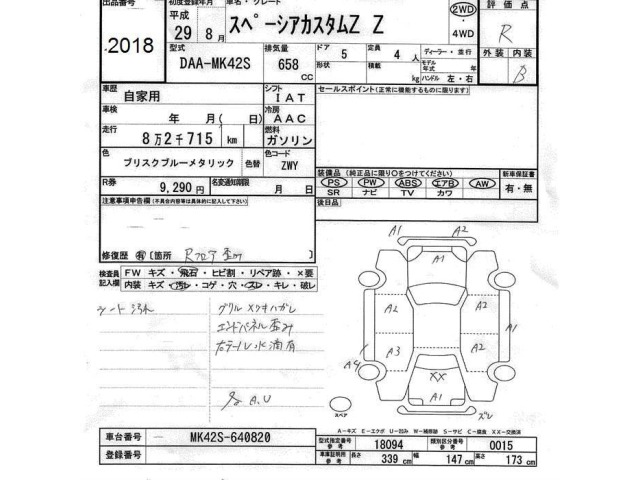 出品番号 初度登録年月 車名・グレード 評価点
2018 平成 29 8月 スペーシアカスタムZ Z 2WD ・ 4WD R
型式 排気量 ドア 5 定員 4人 ディーラー・並行 外装 内装
DAA-MK42S 658 CC 形状 積載 kg モデル年式 年 ハンドル 左・右 B
車歴 自家用 シフト IAT セールスポイント(正常に機能するものに限ります)
車検 年 月(日) 冷房 AAC
走行 8万2千715 km 燃料 ガソリン
色 ブリスクブルーメタリック 色替 色コード ZWY
装備品(純正品に限り○をつけてください) 新車保証書
R券 9,290円 名変通知期限 月 日 PS PW ABS エアB AW 有・無
SR ナビ TV カワ
注意事項申告欄(不具合内容等は具体的に記入して下さい) 後日品
修復歴 有 〔箇所 Rフロア歪み
検査員記入欄 FW キズ・飛石・ヒビ割・リペア跡・×要
内装 キズ・汚レ・コゲ・穴・スレ・キレ・破レ
シート汚れ グリルメッキハガレ
エンドパネル歪み
右テールレ水滴有
A.U
A1 A2
A1
A2 A2 A1
A3 A2
A4
XX
A1
スペア ズレ
A-キズ E-エクボ U-凹み W-補修跡 S-サビ C-腐食 XX-交換済
車台番号 MK42S-640820
登録番号
型式指定番号 参考 18094 類別区分番号 参考 0015
車庫証明用 参考 長さ 339 cm 幅 147 cm 高さ 173 cm